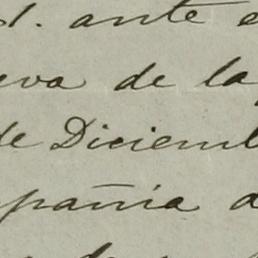 d. ante
eva de la
de Diciem
pañia